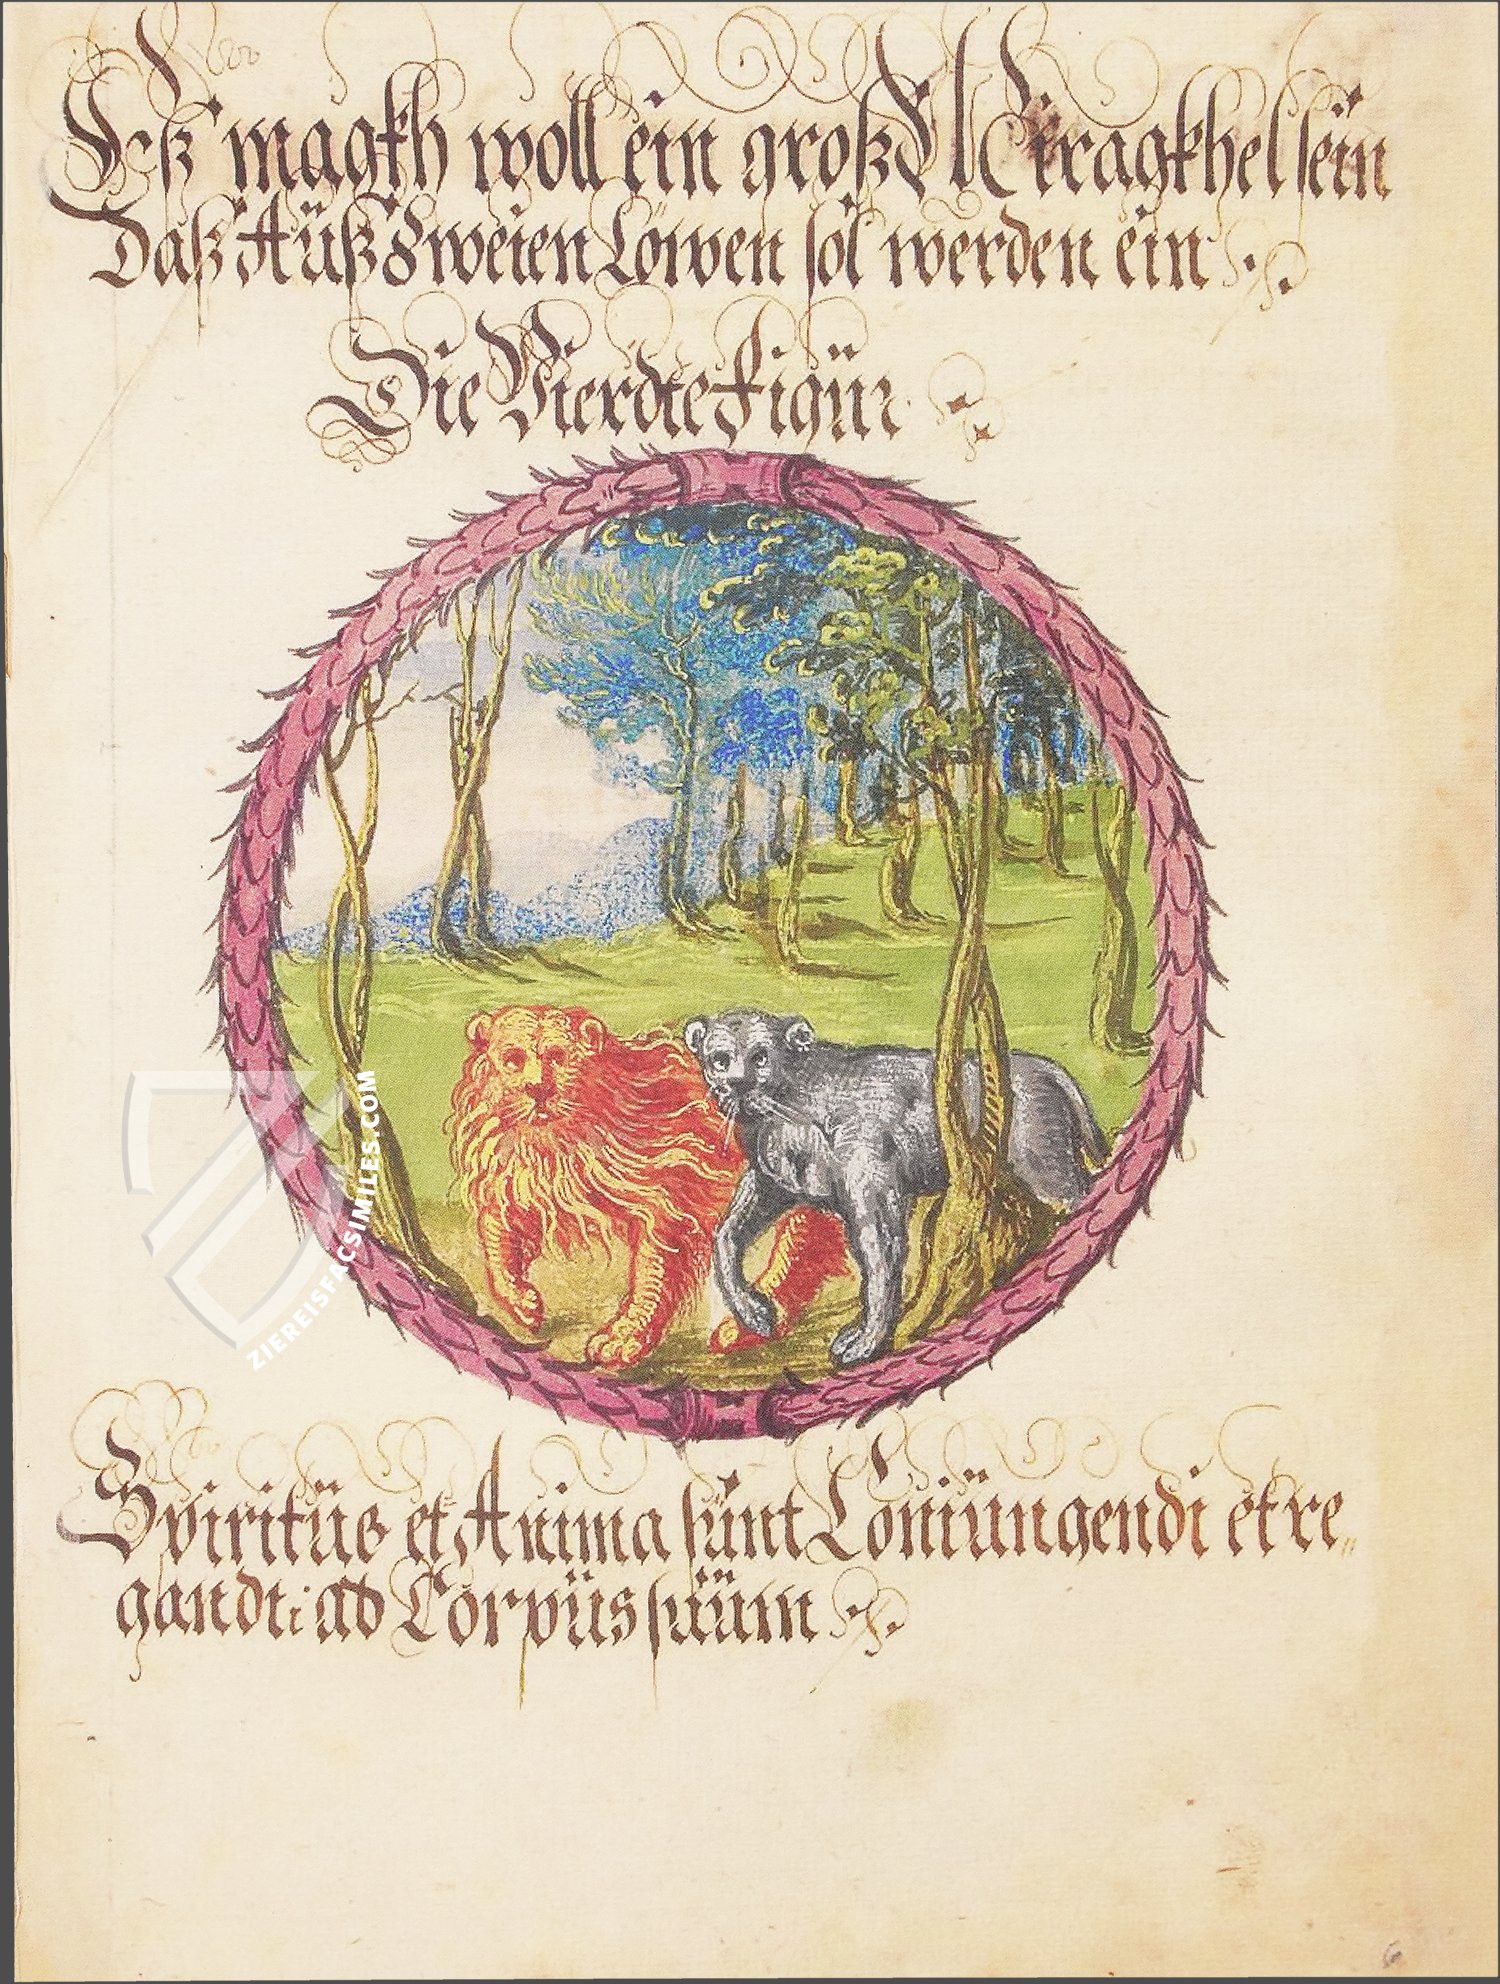 Eß magkh woll ein groß Miragkhel sein
Daß Aüß Zweien Löwen sol werden ein
Die Vierdte Figür
ZIEREISFACSIMILES.COM
Spiritüs et Anima sünt Coniüngendi et re„
gandti ab Corpüs süüm
6